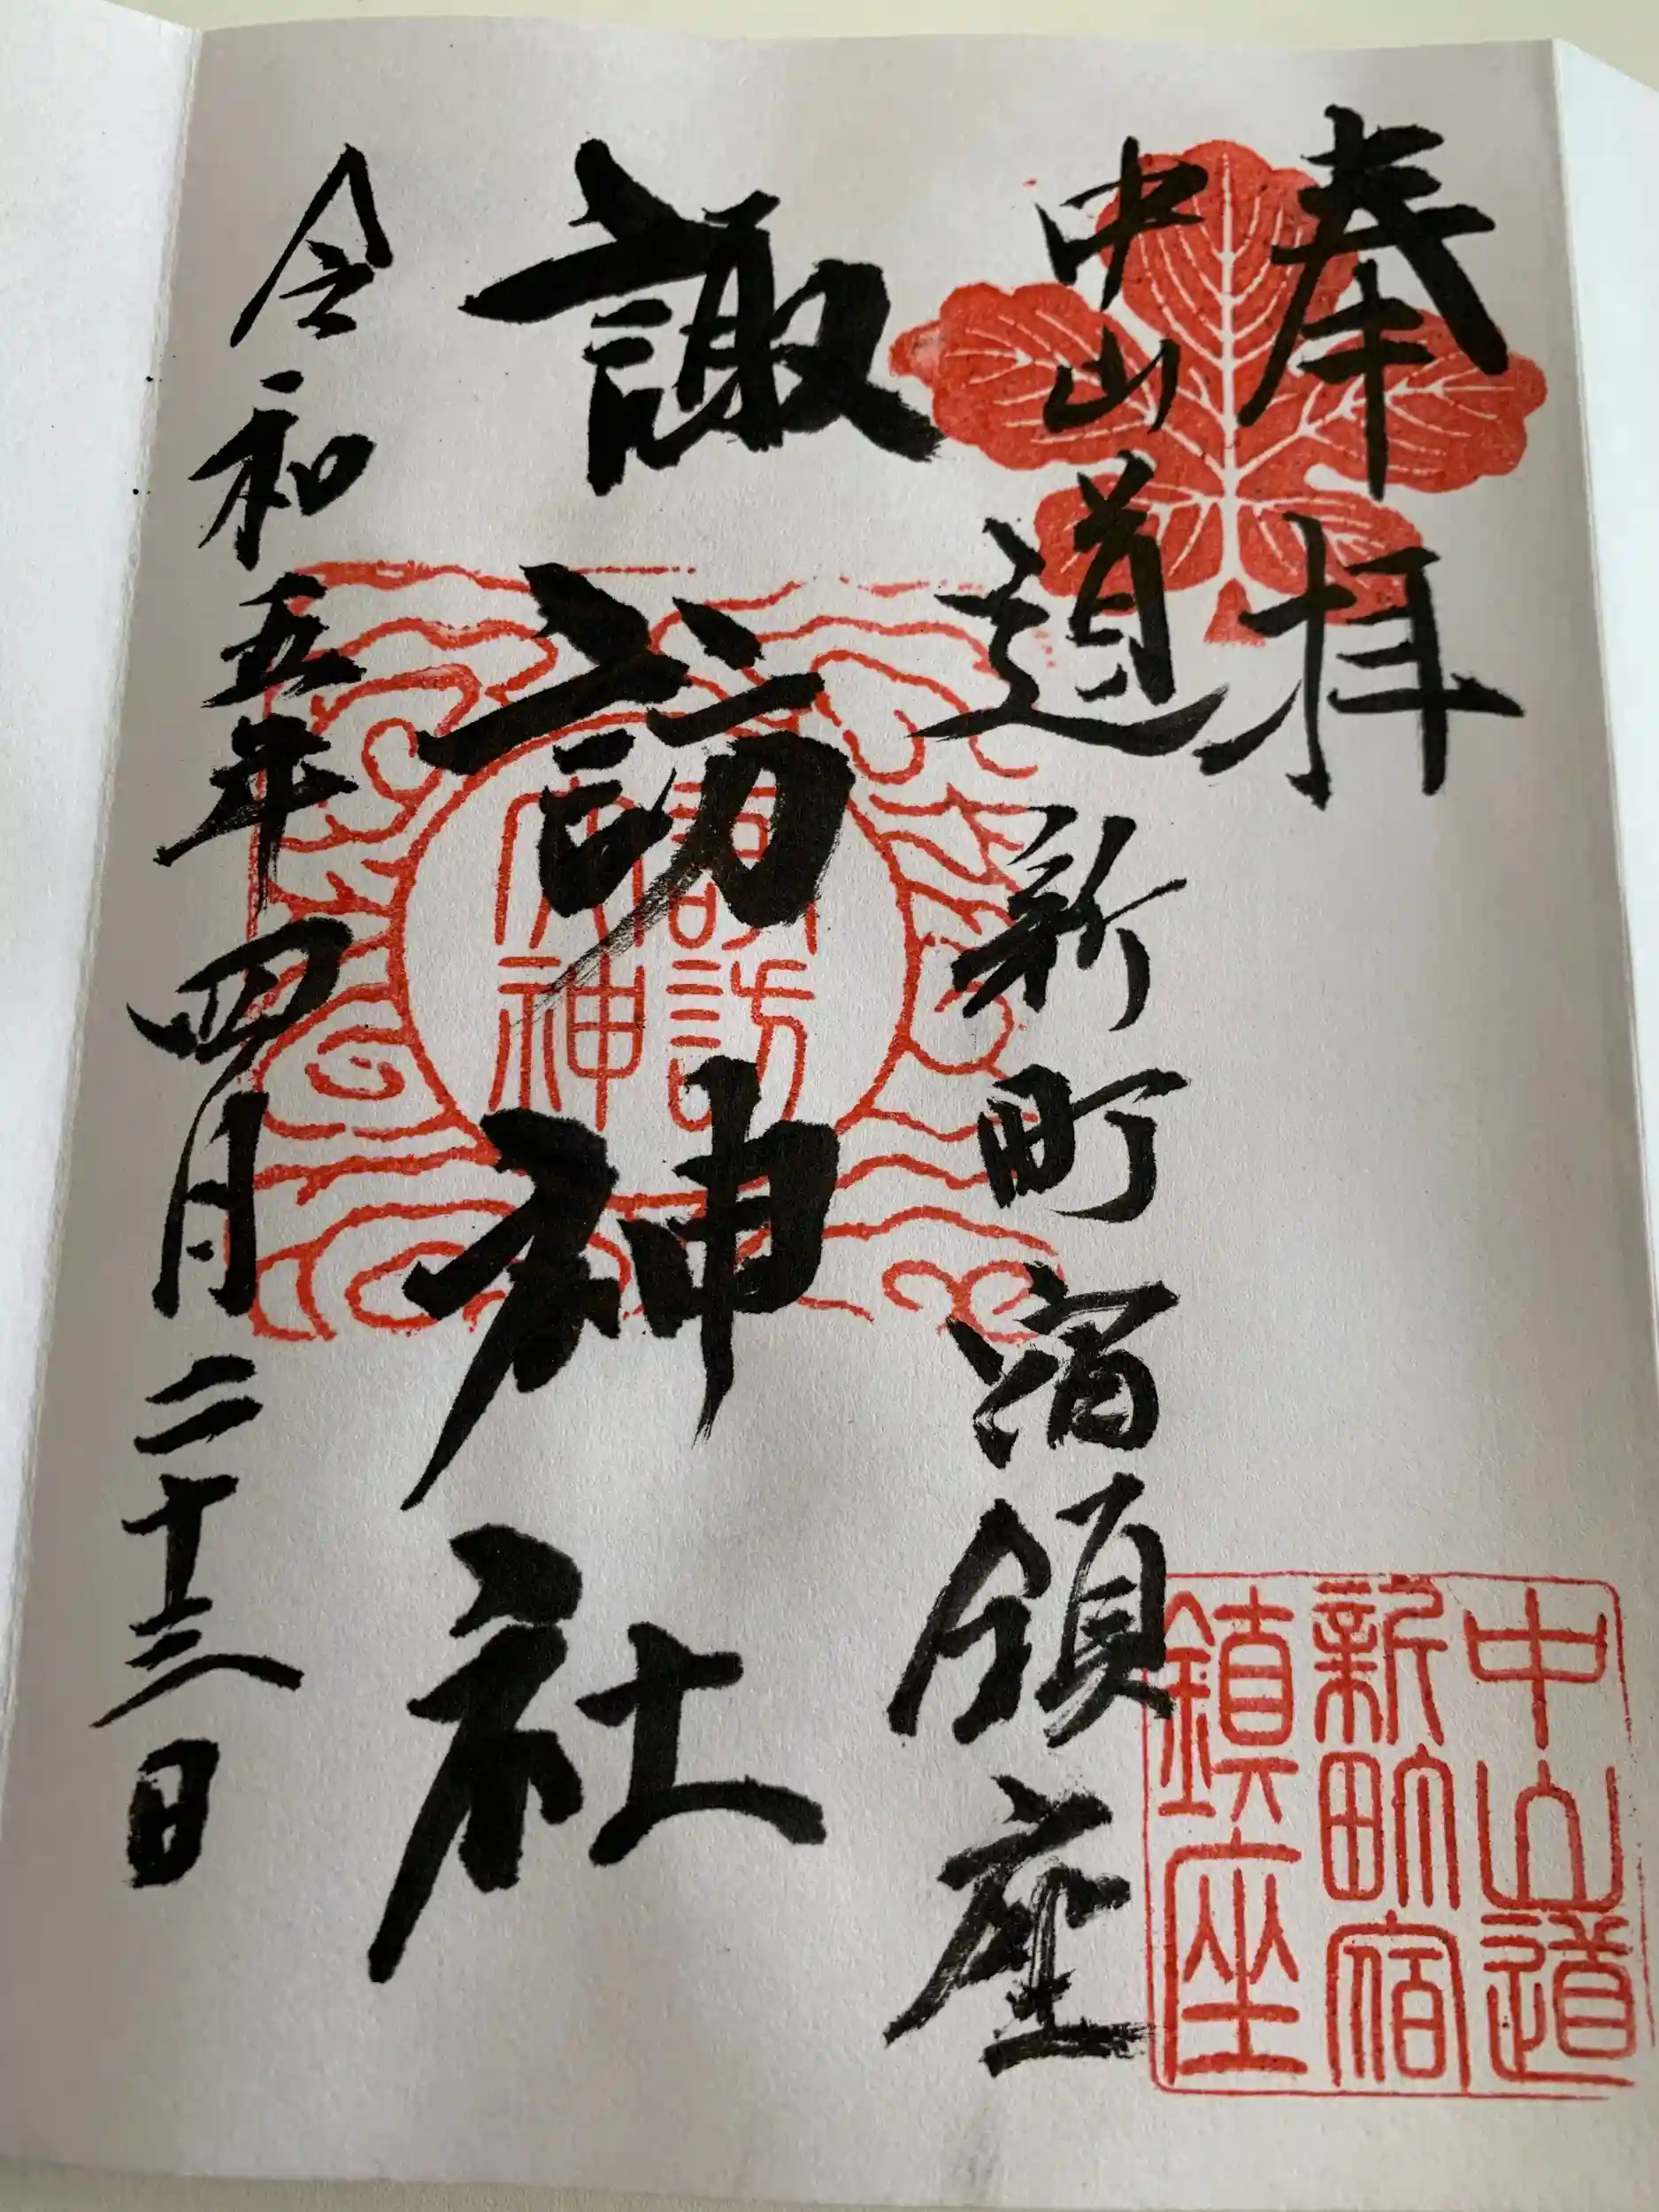 奉拝
中山道新町宿鎮座
諏訪神社
令和五年四月二十三日
諏訪
大神
中山道
新町宿
鎮座